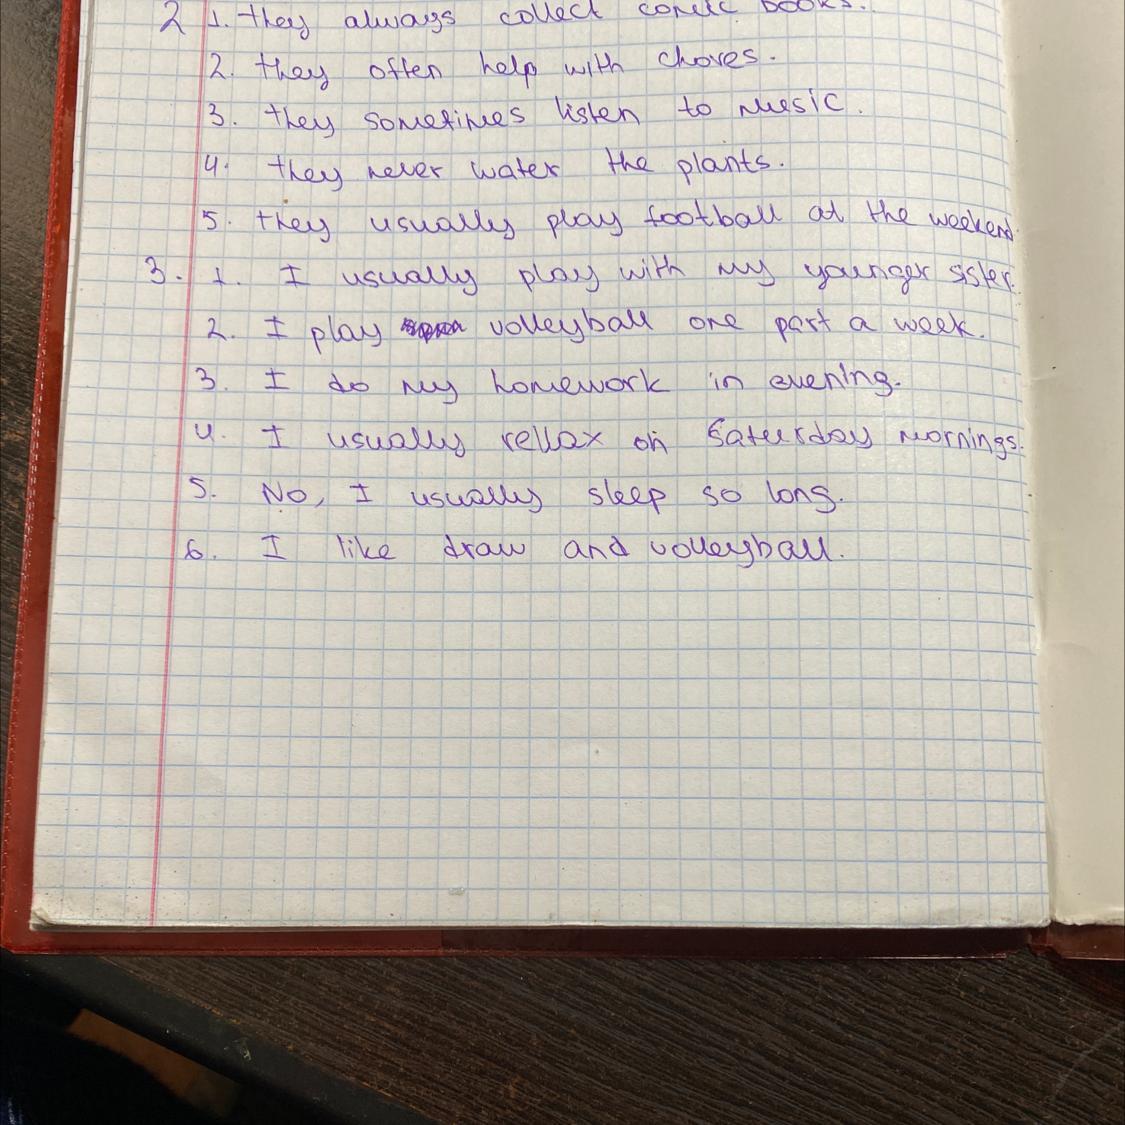 2 1. they always collect comic books.
2. they often help with chores.
3. they sometimes listen to music.
4. they never water the plants.
5. they usually play football at the weekend.
3. 1. I usually play with my younger sister.
2. I play volleyball one part a week.
3. I do my homework in evening.
4. I usually rellax on Saturday mornings.
5. No, I usually sleep so long.
6. I like draw and volleyball.